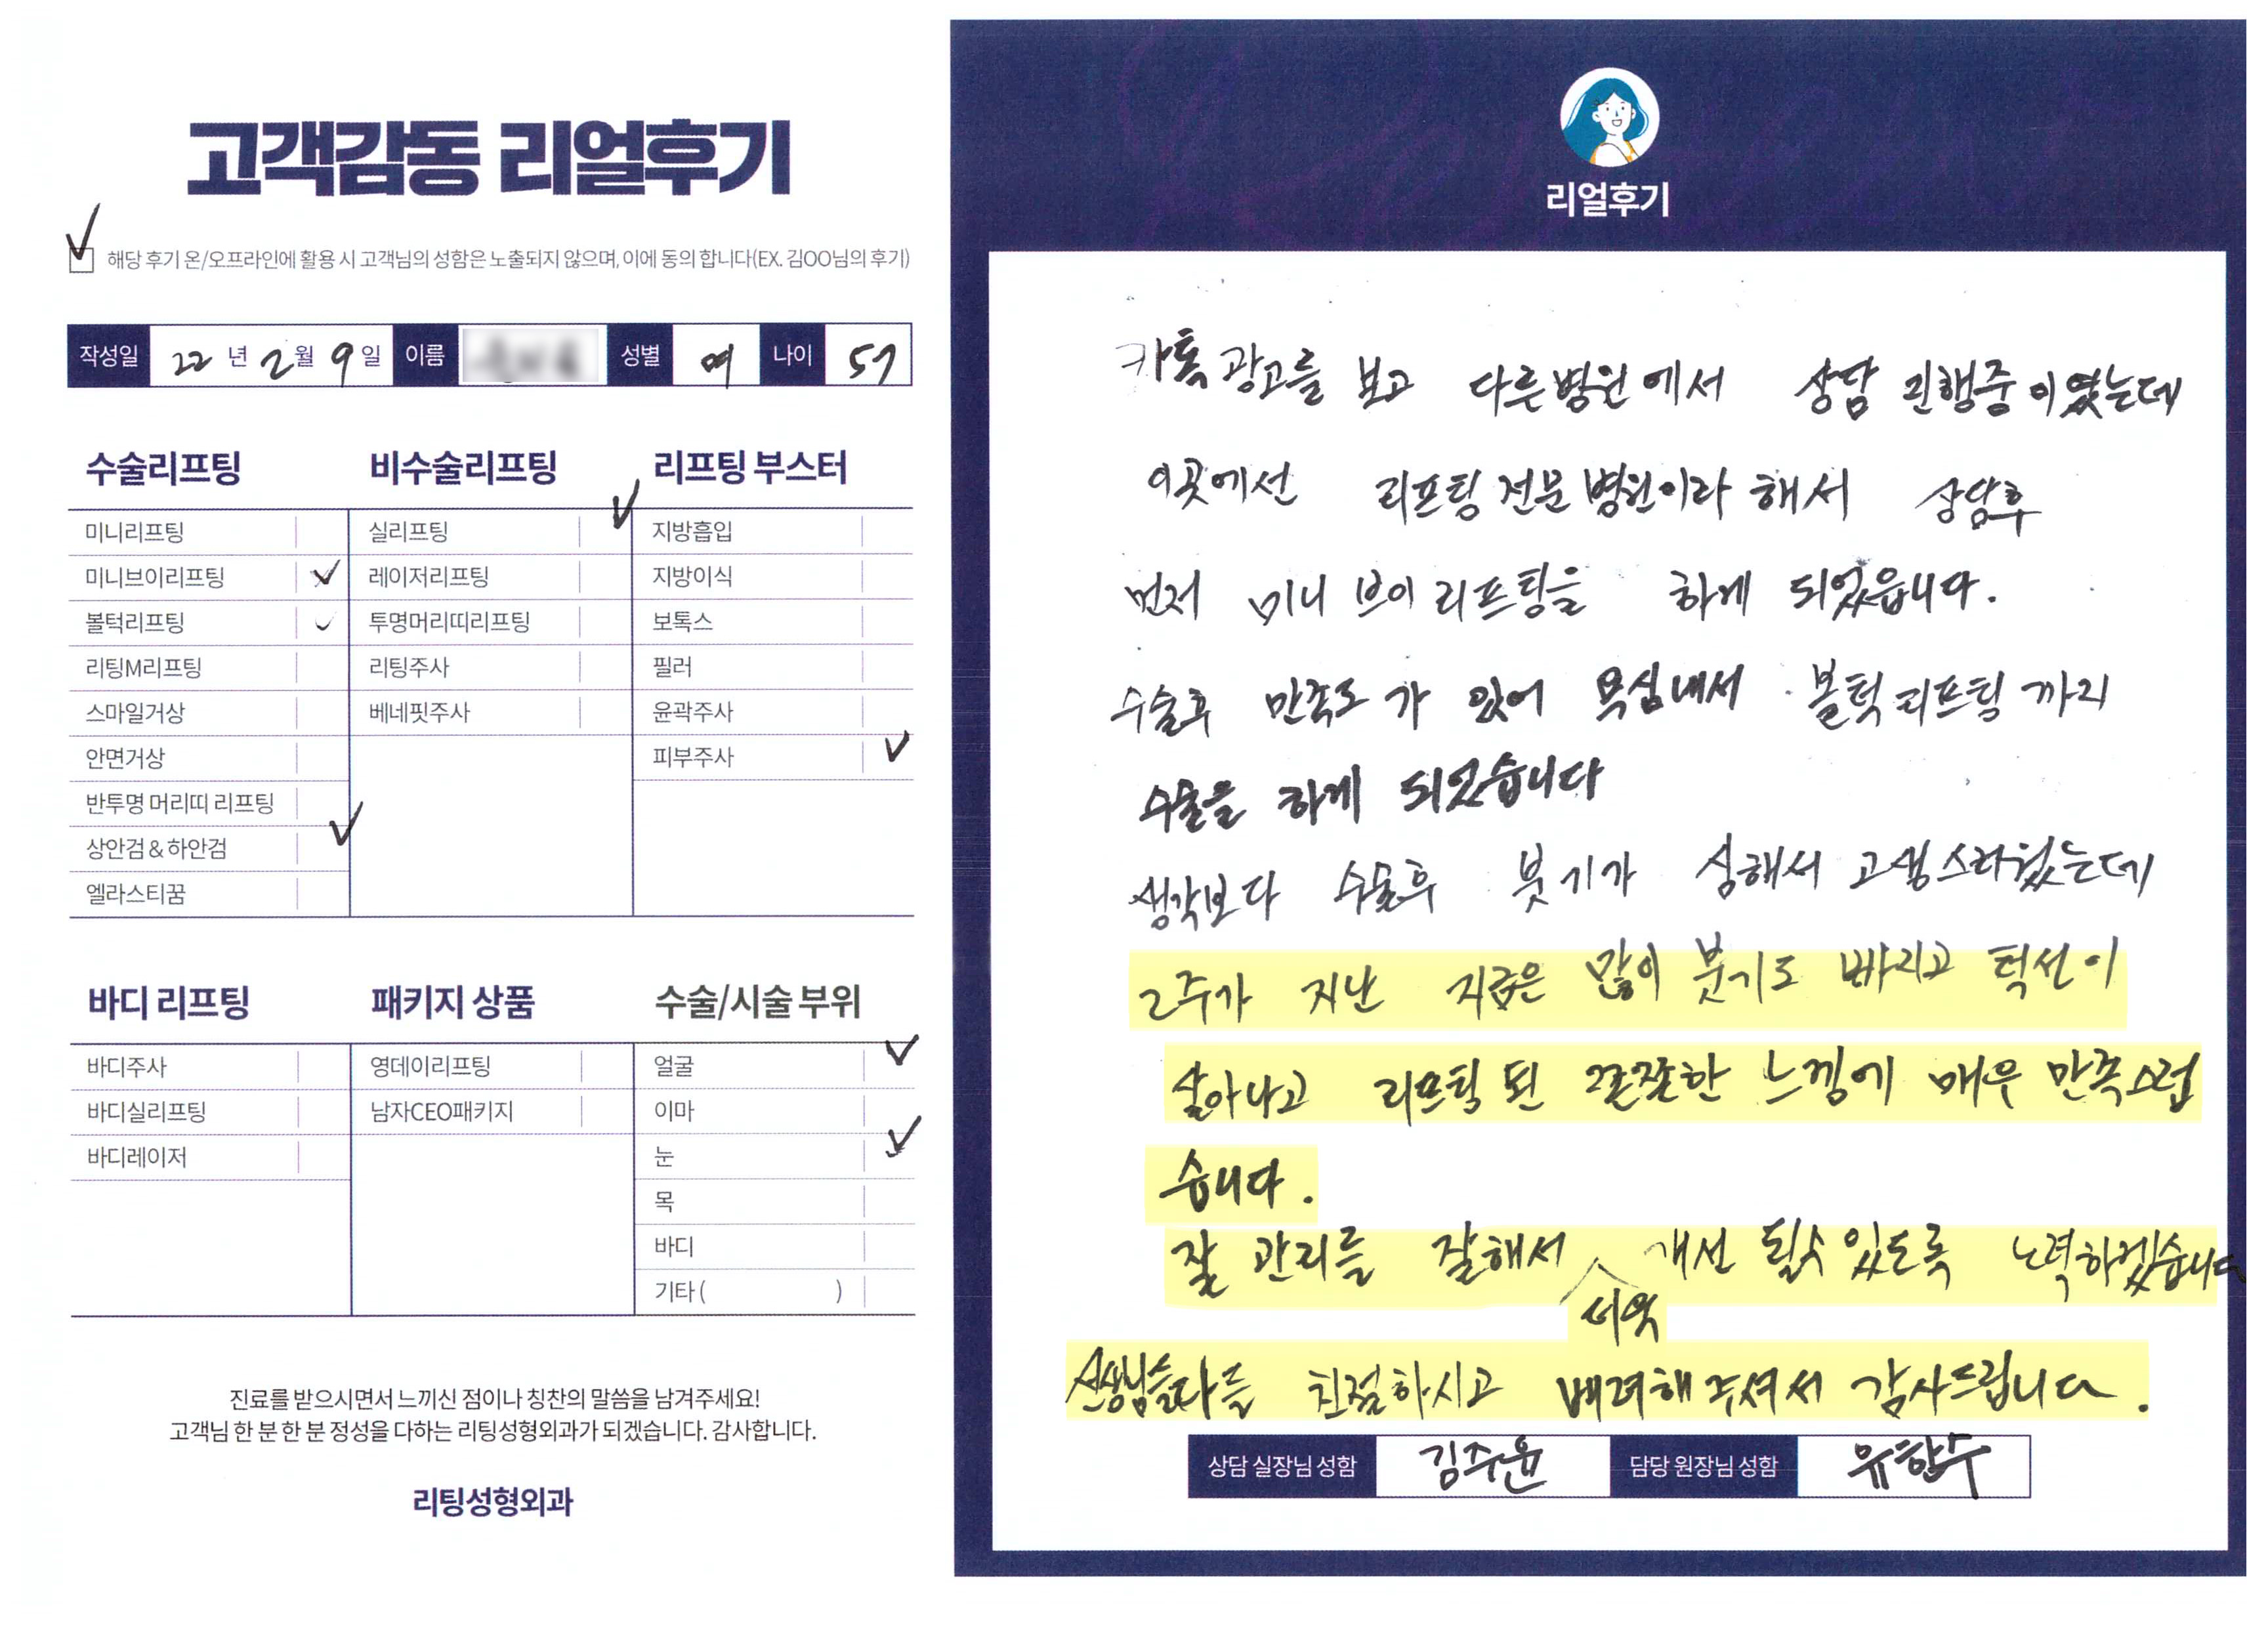 고객감동 리얼후기
해당 후기 온/오프라인에 활용 시 고객님의 성함은 노출되지 않으며, 이에 동의 합니다(EX. 김OO님의 후기)
작성일 22년 2월 9일 이름 성별 여 나이 57
수술리프팅
미니리프팅
미니브이리프팅
볼턱리프팅
리팅M리프팅
스마일거상
안면거상
반투명 머리띠 리프팅
상안검&하안검
엘라스티꿈
비수술리프팅
실리프팅
레이저리프팅
투명머리띠리프팅
리팅주사
베네핏주사
리프팅 부스터
지방흡입
지방이식
보톡스
필러
윤곽주사
피부주사
바디 리프팅
바디주사
바디실리프팅
바디레이저
패키지 상품
영데이리프팅
남자CEO패키지
수술/시술 부위
얼굴
이마
눈
목
바디
기타 ( )
진료를 받으시면서 느끼신 점이나 칭찬의 말씀을 남겨주세요!
고객님 한 분 한 분 정성을 다하는 리팅성형외과가 되겠습니다. 감사합니다.
리팅성형외과
리얼후기
카톡 광고를 보고 다른병원에서 상담 진행중이였는데
이곳에선 리프팅 전문병원이라 해서 상담후
먼저 미니 브이 리프팅을 하게 되었읍니다.
수술후 만족도가 있어 욕심내서 볼턱리프팅 까지
수술을 하게 되었습니다
생각보다 수술후 붓기가 심해서 고생스러웠는데
2주가 지난 지금은 많이 붓기도 빠지고 턱선이
살아나고 리프팅 된 짱짱한 느낌에 매우 만족스럽
습니다.
잘 관리를 잘해서 더욱 개선 될수 있도록 노력하겠습니다
선생님들 다들 친절하시고 배려해 주셔서 감사드립니다.
상담 실장님 성함 김주윤 담당 원장님 성함 유한수